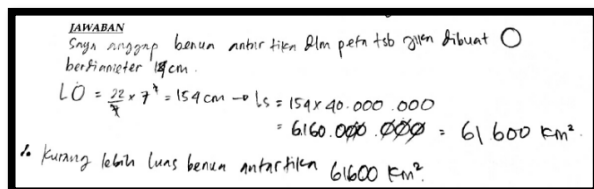 JAWABAN
Saya anggap benua antartika dlm peta tsb jika dibuat O
berdiameter 14 cm.
LO = 22/7 x 7² = 154 cm → Ls = 154 x 40.000.000
= 6.160.000.000 = 61 600 km².
∴ Kurang lebih luas benua antartika 61600 km².